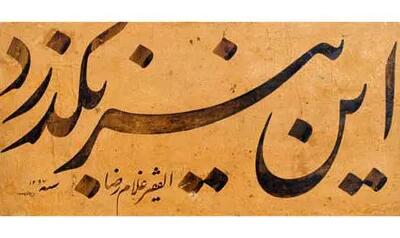 این نیز بگذرد
الفقیر غلام رضا
سنه